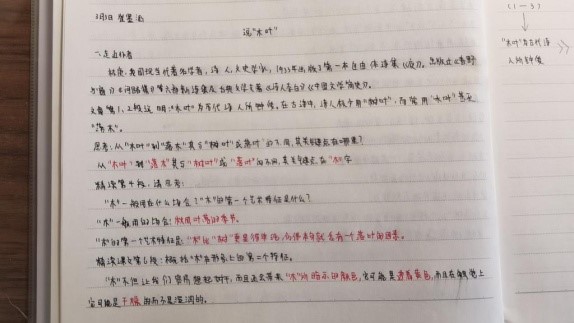 3月1日
说"木叶"
一、走近作者
林庚,我国现当代著名学者,诗人,文史学家,1933年出版了第一本自由体诗集《夜》。
文章第1、2段说明:"木叶"为古代诗人所钟爱。在古诗中,诗人很少用"树叶",而常用"木叶"甚至
"落木"。
思考:从"木叶"到"落木"其与"树叶"或"落叶"的不同,其关键点在哪里?
从"木叶"到"落木"其与"树叶"或"落叶"的不同,其关键点在"木"字
精读第4段,请思考:
"木"一般用在什么场合?"木"的第一个艺术特征是什么?
"木"一般用的场合:秋风叶落的季节。
"木"的第一个艺术特征是:"木"比"树"更显得单纯,仿佛本身就含有一个落叶的因素。
精读课文第6段:概括"木"在形象上的第二个特征。
"木"不但让我们容易想起树干,而且还会带来"木"所暗示的颜色,它可能是透着黄色,而且在触觉上
它可能是干燥的而不是湿润的。
(1-3)
"木叶"为古代诗
人所钟爱